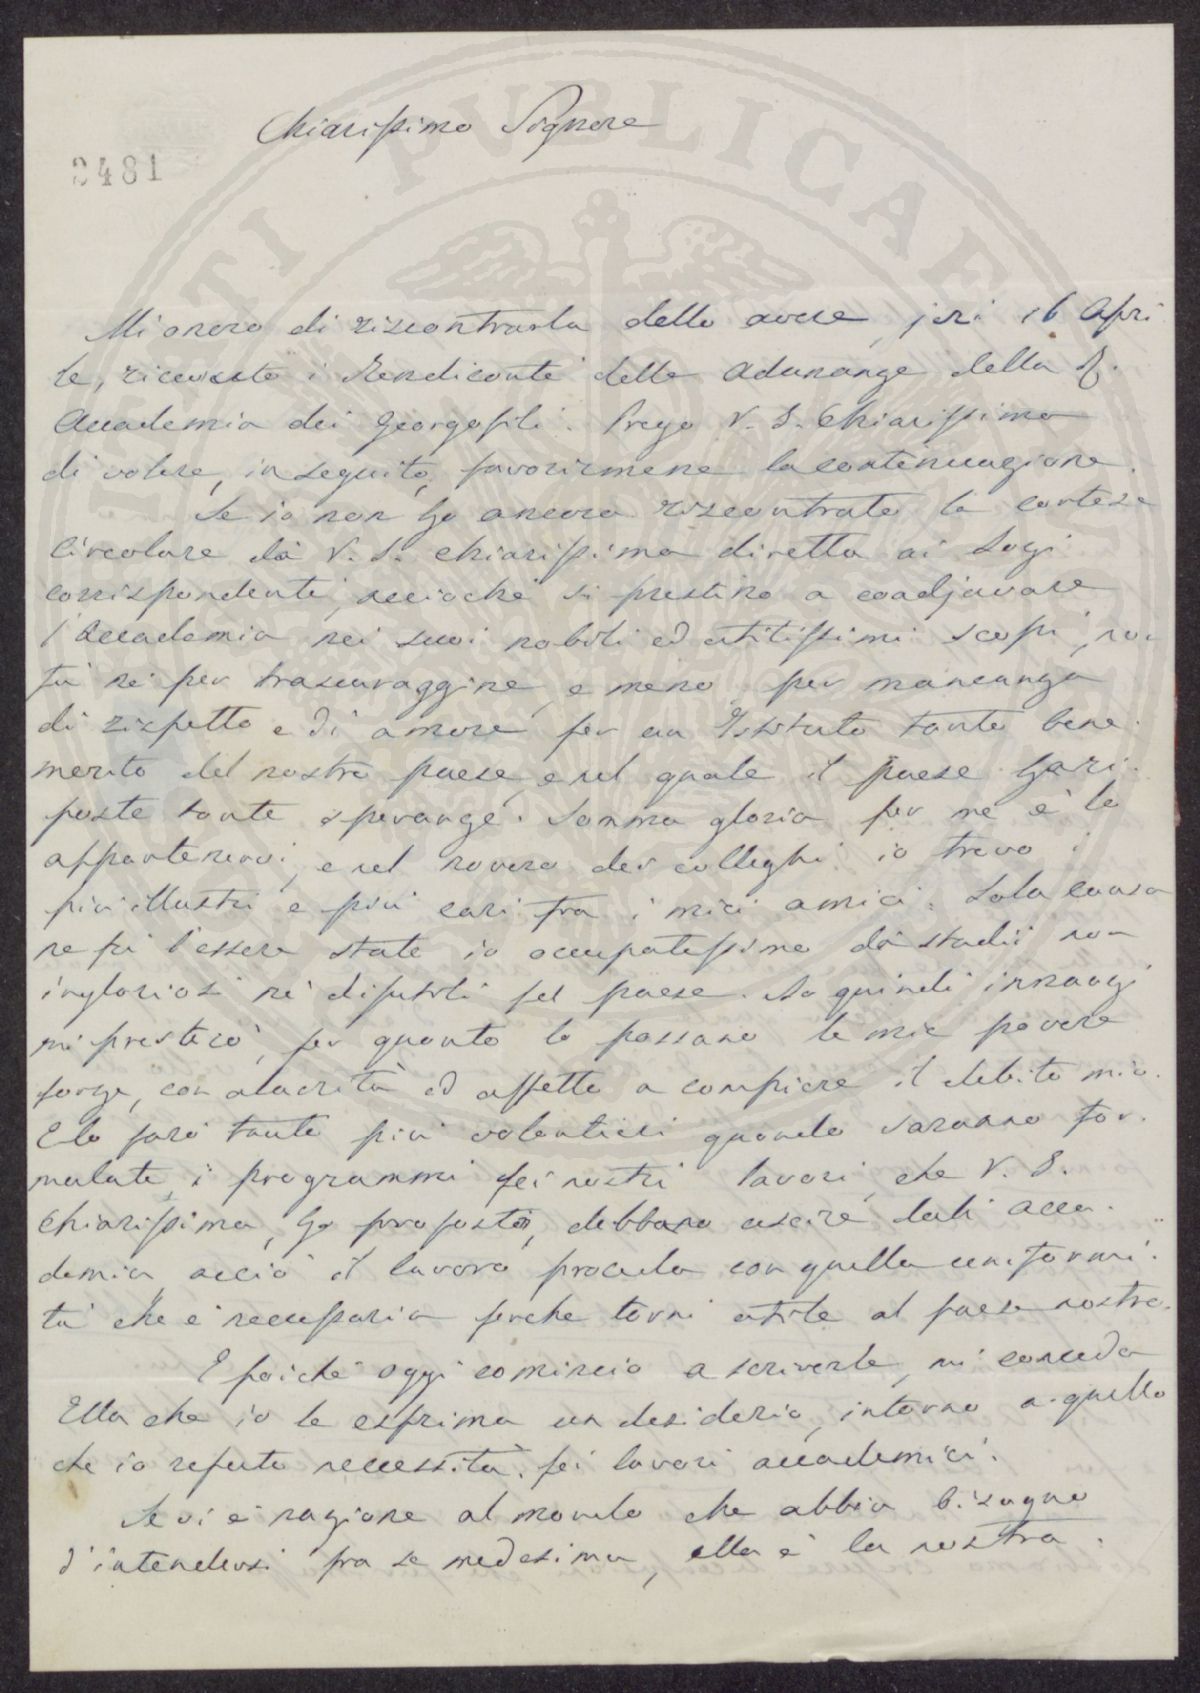 Chiarissimo Signore
3481
Mi onoro di riscontrarla dello avere, jeri 16 Apri
le, ricevuto i Rendiconti delle Adunanze della R.
Accademia dei Georgofili. Prego V. S. Chiarissima
di volere, in seguito, favorirmene la continuazione.
Se io non ho ancora riscontrato la cortese
circolare da V. S. chiarissima diretta ai Sozi
corrispondenti, acciochè si prestino a coadjuvare
l'Accademia nei suoi nobili ed utilissimi scopi, non
fu nè per trascuraggine, e meno, per mancanza
di rispetto e di amore per un Istituto tanto bene-
merito del nostro paese, e nel quale il paese ha ri-
poste tante speranze. Somma gloria per me è lo
appartenervi, e nel novero dei colleghi io trovo i
più illustri e più cari fra i miei amici. Sola causa
ne fu l'essere stato io occupatissimo da studii non
ingloriosi nè disutili pel paese. Da quindi innanzi
mi presterò, per quanto lo possano le mie povere
forze, con alacrità ed affetto a compiere il debito mio.
E lo farò tanto più volentieri quando saranno for-
mulate i programmi pei nostri lavori, che V. S.
Chiarissima, ha proposto, debbano uscire dalla acca-
demia acciò il lavoro proceda con quella uniformi-
tà che è necessaria perche torni utile al paese nostro.
E poichè oggi comincio a scriverle, mi conceda
Ella che io le esprima un desiderio, intorno a quello
che io reputo necessità pei lavori accademici.
Se vi è nazione al mondo che abbia bisogno
d'intendersi fra se medesima, ella è la nostra.